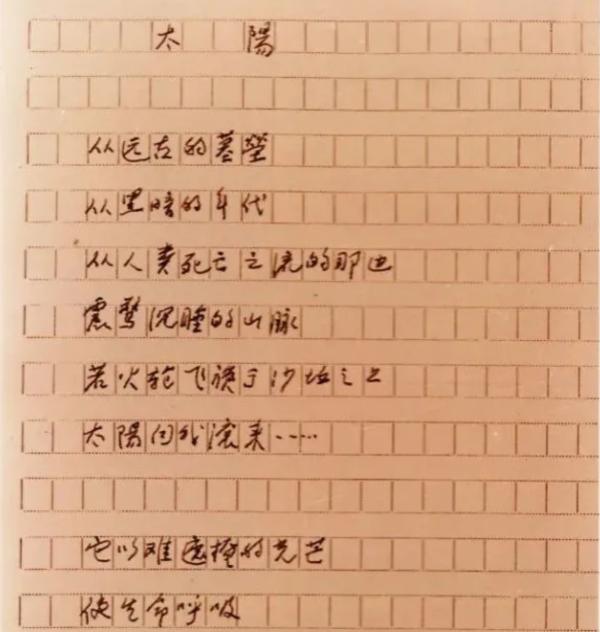 太陽
从远古的墓茔
从黑暗的年代
从人类死亡之流的那边
震驚沉睡的山脉
若火轮飞旋于沙丘之上
太陽向我滚来……
它以难遮掩的光芒
使生命呼吸